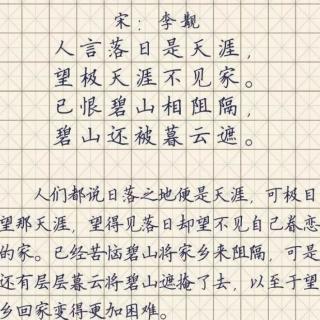 宋：李觏
人言落日是天涯，
望极天涯不见家。
已恨碧山相阻隔，
碧山还被暮云遮。
人们都说日落之地便是天涯，可极目
望那天涯，望得见落日却望不见自己眷恋
的家。已经苦恼碧山将家乡来阻隔，可是
还有层层暮云将碧山遮掩了去，以至于望
乡回家变得更加困难。